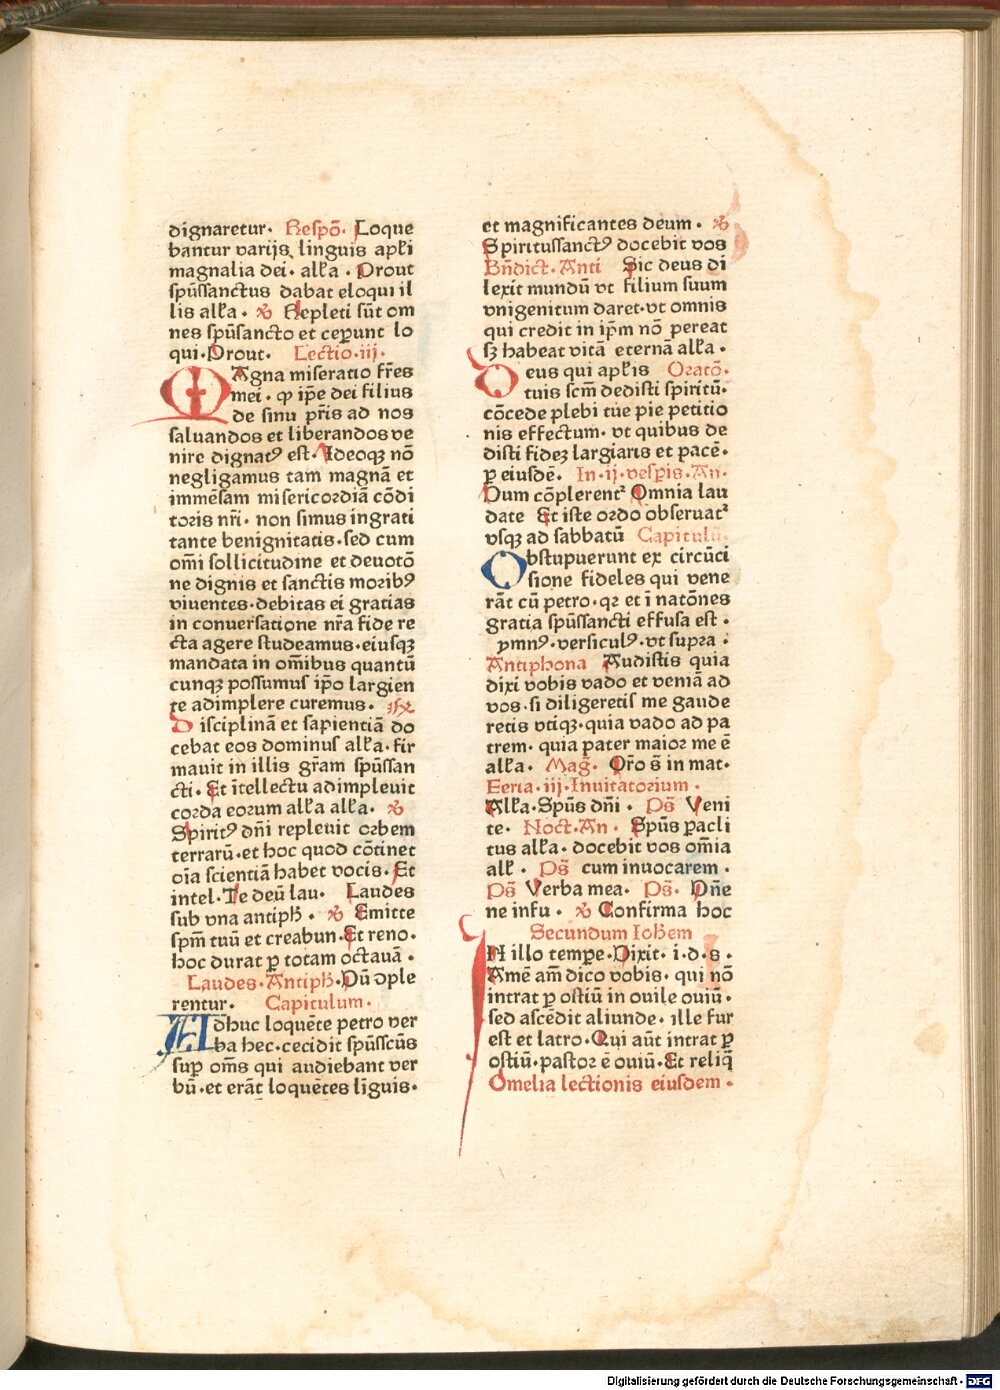 dignaretur. Respõ. Loque
bantur varijs linguis apl̃i
magnalia dei. all̃a. Prout
spũssanctus dabat eloqui il
lis all̃a. ꝟ Repleti sũt om
nes spũsancto et ceperunt lo
qui. Prout. Lectio. iij.
MAgna miseratio fr̃es
mei. ꝙ ip̃e dei filius
de sinu pr̃is ad nos
saluandos et liberandos ve
nire dignatꝰ est. Ideoqꝫ nõ
negligamus tam magnã et
immẽsam misericordiã cõdi
toris nr̃i. non simus ingrati
tante benignitatis. sed cum
om̃i sollicitudine et deuotõ
ne dignis et sanctis moribꝰ
viuentes. debitas ei gratias
in conuersatione nr̃a fide re
cta agere studeamus. eiusqꝫ
mandata in om̃ibus quantũ
cunqꝫ possumus ip̃o largien
te adimplere curemus. ℟
Disciplinã et sapientiã do
cebat eos dominus all̃a. fir
mauit in illis gr̃am spũssan
cti. Et ĩtellectu adimpleuit
corda eorum all̃a all̃a. ꝟ
Spiritꝰ dñi repleuit orbem
terrarũ. et hoc quod cõtinet
oĩa scientiã habet vocis. Et
intel. Te deũ lau. Laudes
sub vna antiph̃. ꝟ Emitte
sp̃m tuũ et creabun. Et reno.
hoc durat ꝑ totam octauã.
Laudes. Antiph̃. Dũ ↄple
rentur. Capitulum.
ADhuc loquẽte petro ver
ba hec. cecidit spũsscũs
suꝑ om̃s qui audiebant ver
bũ. et erãt loquẽtes liguis.
et magnificantes deum. ꝟ
Spiritussanctꝰ docebit vos
Bñdict. Anti Sic deus di
lexit mundũ vt filium suum
vnigenitum daret. vt omnis
qui credit in ip̃m nõ pereat
sꝫ habeat vitã eternã all̃a.
Deus qui apl̃is Oratõ.
tuis scm̃ dedisti spiritũ.
cõcede plebi tue pie petitio
nis effectum. vt quibus de
disti fideꝫ largiaris et pacẽ.
ꝑ eiusdẽ. In. ij. vesꝑis. An.
Dum cõplerent᷑ Omnia lau
date Et iste ordo obseruat᷑
vsqꝫ ad sabbatũ Capitulũ
Obstupuerunt ex circũci
sione fideles qui vene
rãt cũ petro. qꝛ et ĩ natõnes
gratia spũssancti effusa est.
ymnꝰ. versiculꝰ. vt supra.
Antiphona Audistis quia
dixi vobis vado et veniã ad
vos. si diligeretis me gaude
retis vtiqꝫ. quia vado ad pa
trem. quia pater maior me ẽ
all̃a. Mag̃. Or̃o s̃ in mat.
Feria. iij. Inuitatorium.
All̃a. Spũs dñi. Ps̃ Veni
te. Noct. An. Spũs pacli
tus all̃a. docebit vos om̃ia
all̃. Ps̃ cum inuocarem.
Ps̃ Verba mea. Ps̃. Dñe
ne infu. ꝟ Confirma hoc
Secundum Ioh̃em
IN illo tempe. Dixit. i. d. s.
Amẽ am̃ dico vobis. qui nõ
intrat ꝑ ostiũ in ouile ouiũ.
sed ascẽdit aliunde. ille fur
est et latro. Qui aũt intrat ꝑ
ostiũ. pastor ẽ ouiũ. Et reliq̃
Omelia lectionis eiusdem.
Digitalisierung gefördert durch die Deutsche Forschungsgemeinschaft - DFG